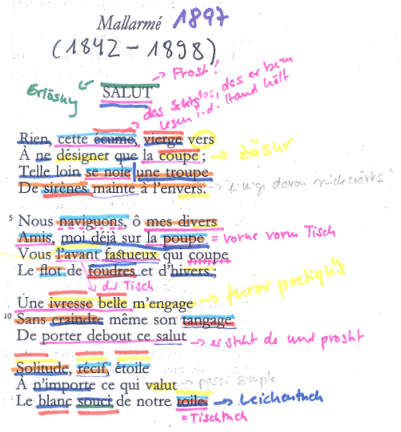 Mallarmé 1897
(1842 – 1898)
Prost!
Erlösung
SALUT
das Sektglas, das er beim
Lesen i.d. Hand hält
Rien, cette écume, vierge vers
À ne désigner que la coupe ; → Zäsur
Telle loin se noie une troupe
De sirènes mainte à l'envers.
5 Nous naviguons, ô mes divers
Amis, moi déjà sur la poupe = vorne vorm Tisch
Vous l'avant fastueux qui coupe
Le flot de foudres et d'hivers ;
↓ der Tisch
Une ivresse belle m'engage → furor poeticus
10 Sans craindre même son tangage
De porter debout ce salut → er steht da und prostet
Solitude, récif, étoile
À n'importe ce qui valut → passé simple
Le blanc souci de notre toile. → Leichentuch
= Tischtuch